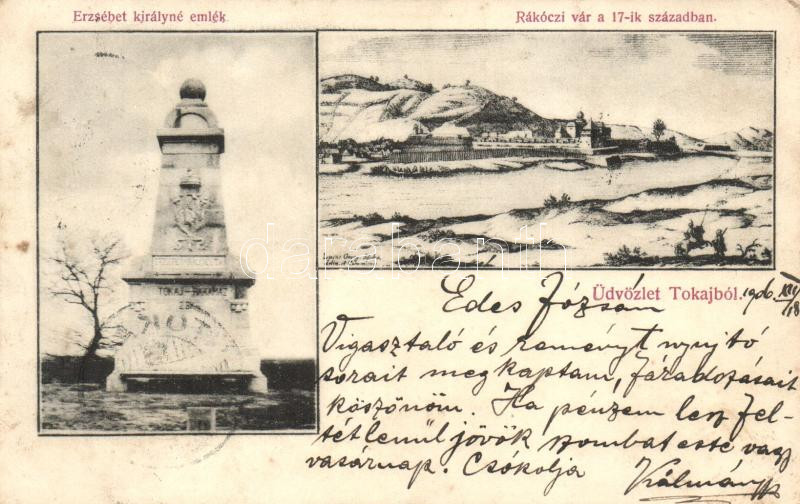 Erzsébet királyné emlék.
Rákóczi vár a 17-ik században.
TOKAJ
darabanth
Üdvözlet Tokajból.
1906
Édes Józsám
Vigasztaló és reményt nyujtó
sorait megkaptam, fáradozásait
köszönöm. Ha pénzem lesz fel-
tétlenül jövök szombat este vagy
vasárnap. Csókolja
Kálmán